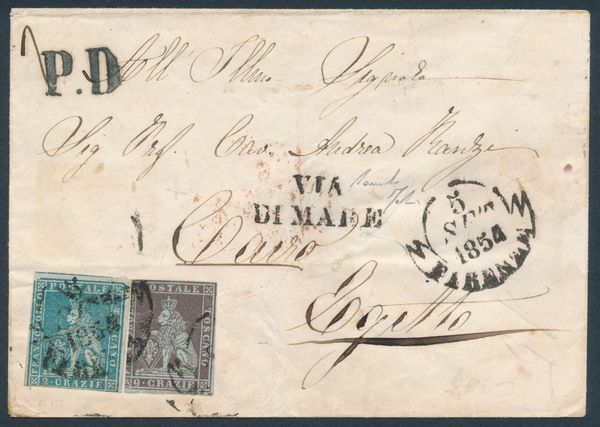 P.D
All' Illmo Signore
Sig Prof. Cav. Andrea Ranzi
VIA
DI MARE
Cairo
Egitto
5
1854
FIRENZE
FRANCOBOLLO POSTALE TOSCANO
2 · CRAZIE
POSTALE TOSCANO
9 · CRAZIE